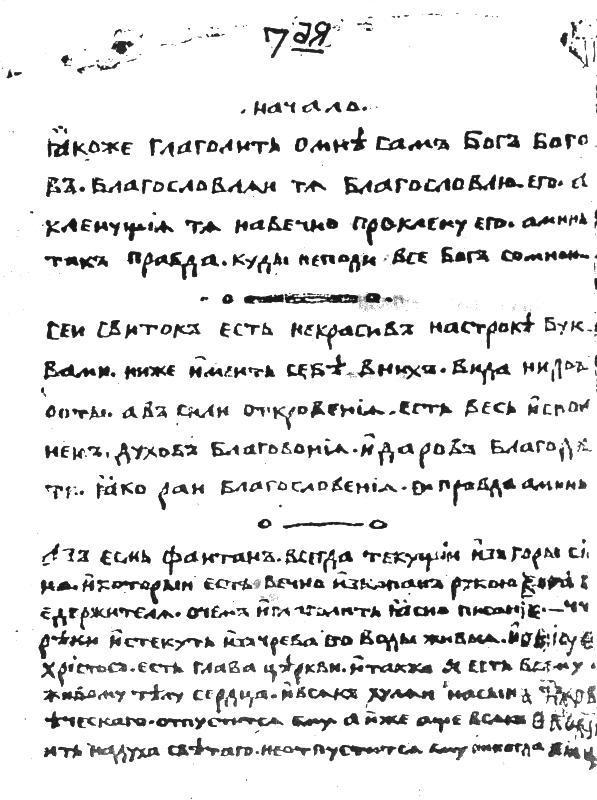 7 ая
. начало.
Ꙗкоже глаголить омнѣ самъ Богъ Бого
въ. Благословлаи тя Благословлю его. а
кленущія тя навечно проклену его. аминь
такъ правда. куды неподи все Богъ сомною.
сеи свитокъ есть некрасивъ настрокѣ Бук
вами. ниже имеить себѣ вних. вида ни доб
роты. авъ сили откровенія. есть весь испол
ненъ духовъ Благовонія. идаровъ Благода
ти. ꙗко раи Благословенія. правда аминь
Азъ есмь фантанъ. всегда текущіи изъ горы сі
на. икоторыи есть вечно ископанъ рукою
едержителя. очемъ иглаголить ꙗсно писаніе.
рѣки истекуть изъчрева его воды живыя. Исусъ
Христосъ. есть глава церкви. итакжа я есть всему
живому тѣлу сердца. ивсякъ хулаи насына
ѣческаго. отпустится ему а иже аще всякъ
ить надуха свѣтаго. неотпустится ему никогда